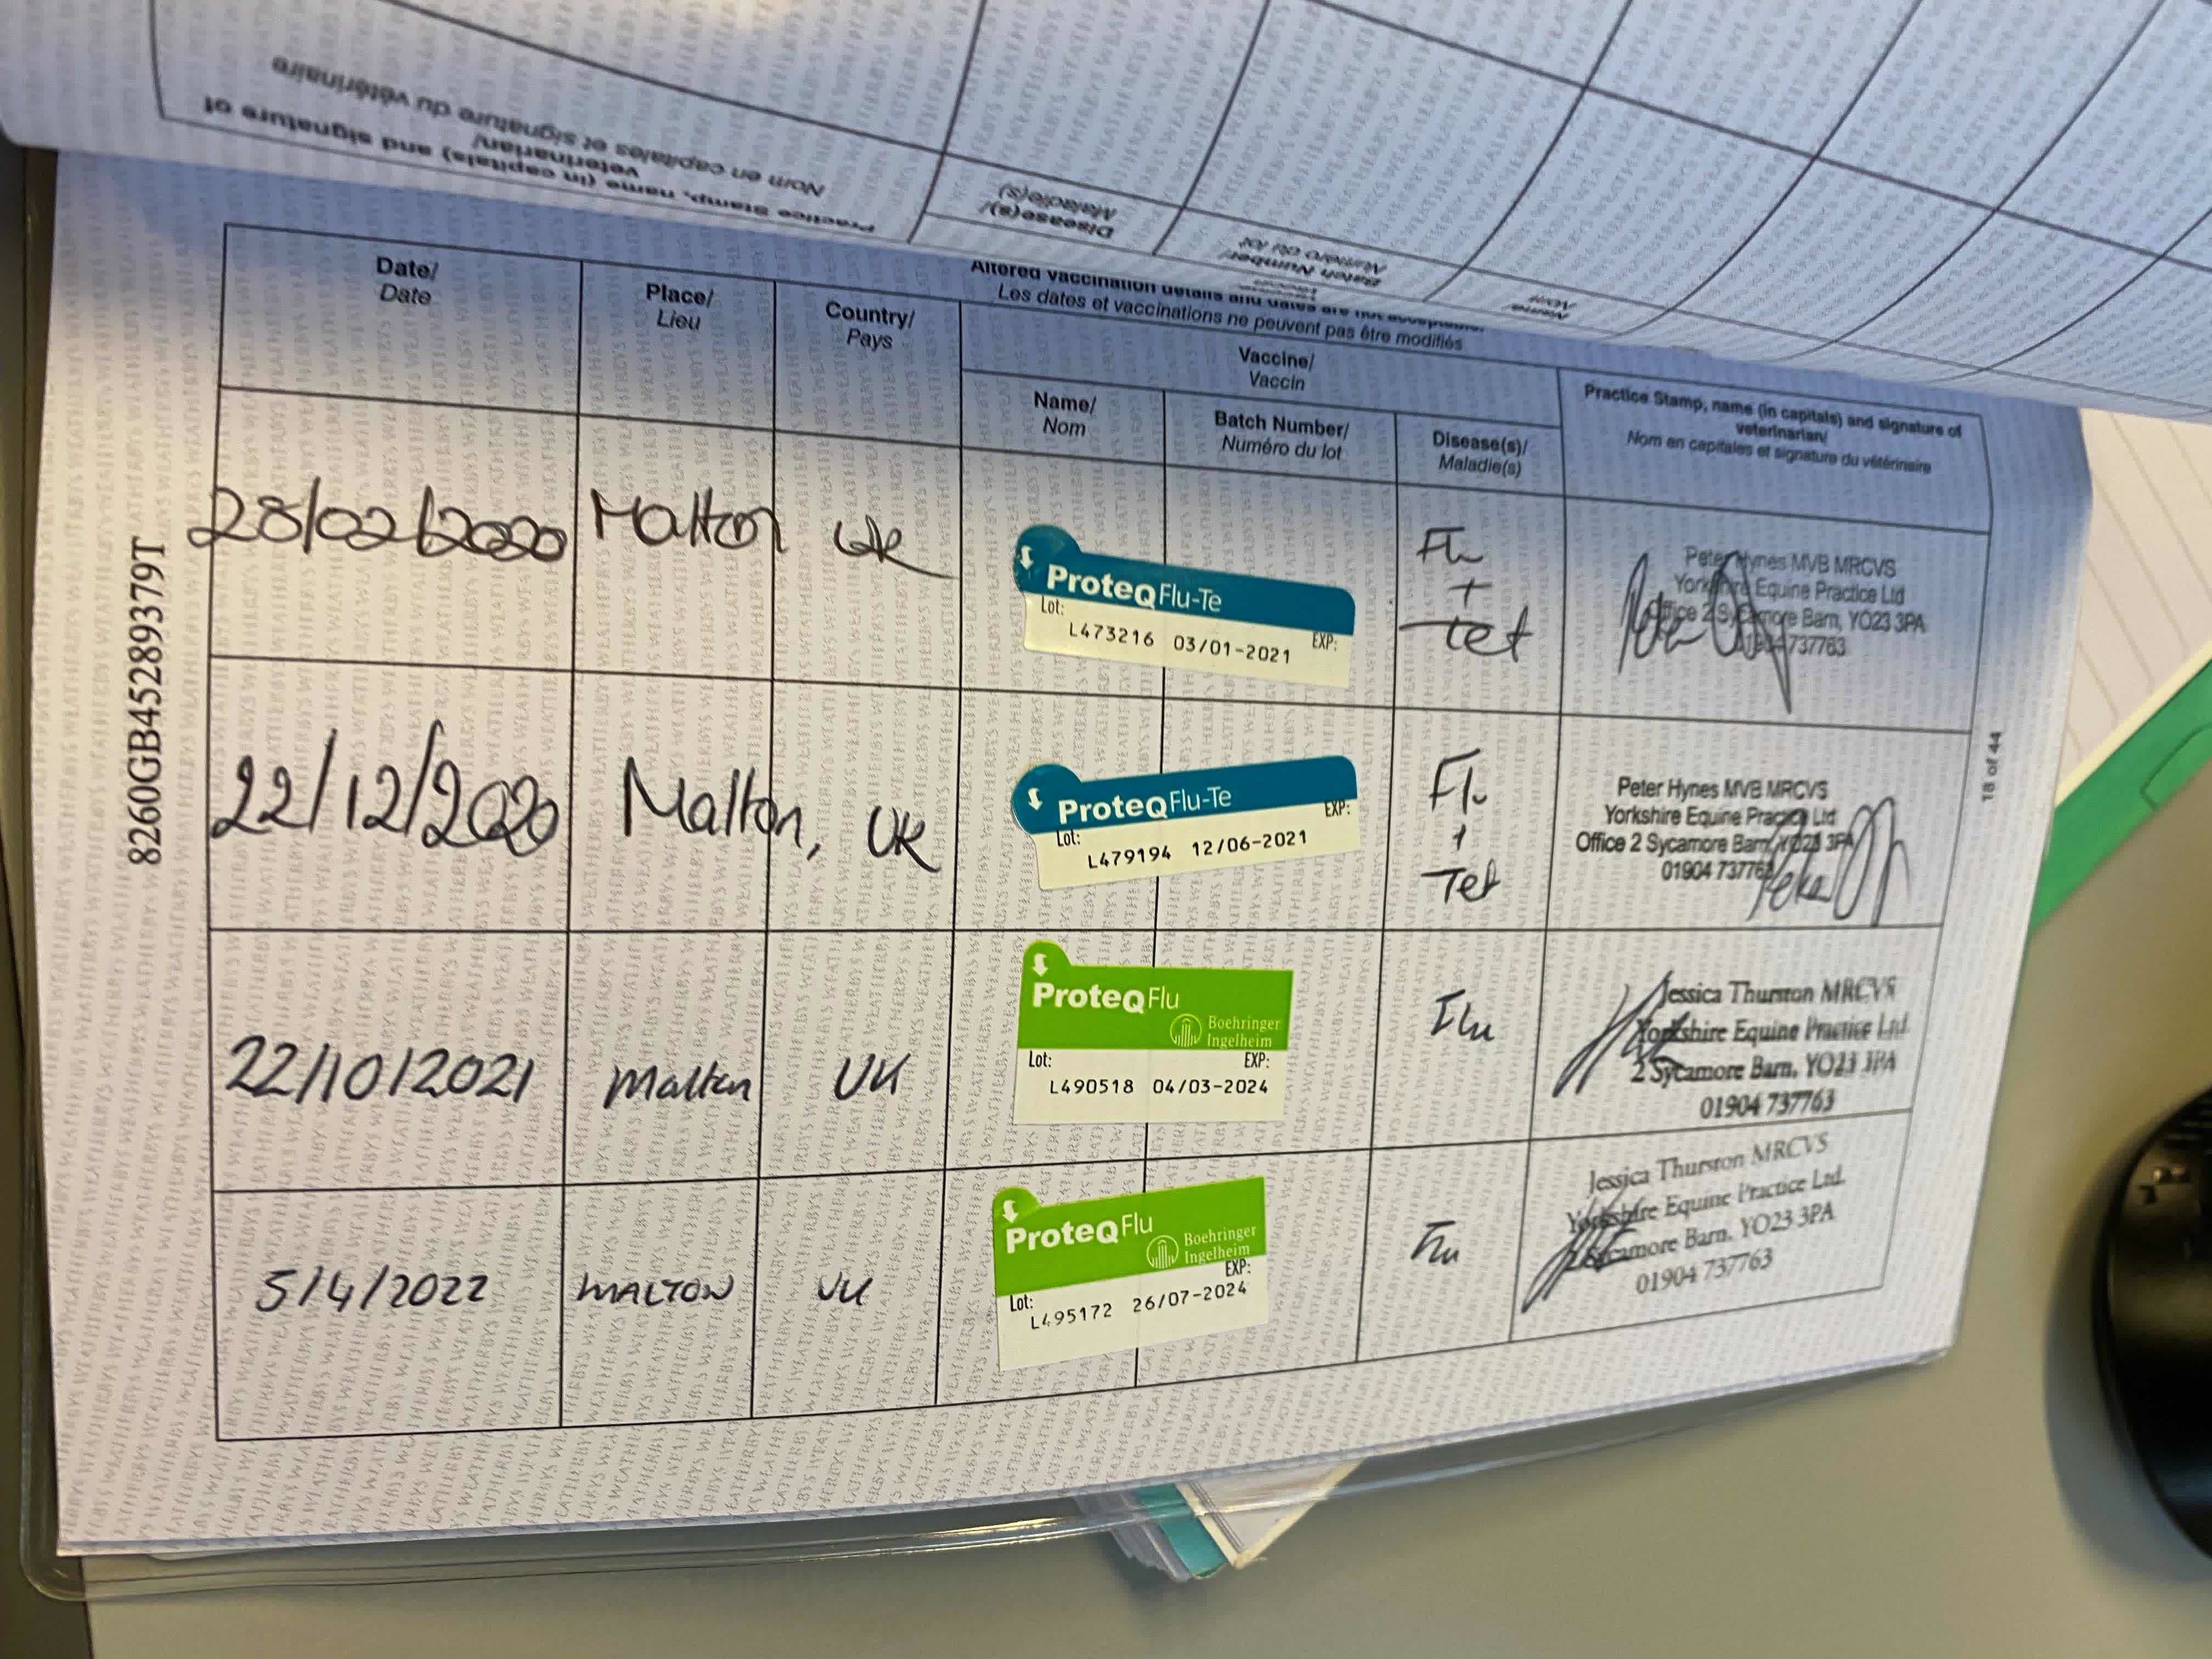 Practice Stamp, name (in capitals) and signature of
veterinarian/
Nom en capitales et signature du vétérinaire
Disease(s)/
Maladie(s)
Batch Number/
Numéro du lot
Name/
Altered vaccination details and dates are not acceptable.
Les dates et vaccinations ne peuvent pas être modifiés
Date/
Date
Place/
Lieu
Country/
Pays
Vaccine/
Vaccin
Name/
Nom
Batch Number/
Numéro du lot
Disease(s)/
Maladie(s)
Practice Stamp, name (in capitals) and signature of
veterinarian/
Nom en capitales et signature du vétérinaire
28/02/2020
Malton
UK
ProteqFlu-Te
Lot:
EXP:
L473216 03/01-2021
Flu
+
Tet
Peter Hynes MVB MRCVS
Yorkshire Equine Practice Ltd
Office 2 Sycamore Barn, YO23 3PA
01904 737763
22/12/2020
Malton,
UK
ProteqFlu-Te
Lot:
EXP:
L479194 12/06-2021
Flu
+
Tet
Peter Hynes MVB MRCVS
Yorkshire Equine Practice Ltd
Office 2 Sycamore Barn, YO23 3PA
01904 737763
22/10/2021
Malton
UK
ProteqFlu
Boehringer
Ingelheim
Lot:
EXP:
L490518 04/03-2024
Flu
Jessica Thurston MRCVS
Yorkshire Equine Practice Ltd.
2 Sycamore Barn, YO23 3PA
01904 737763
5/4/2022
MALTON
UK
ProteqFlu
Boehringer
Ingelheim
Lot:
EXP:
L495172 26/07-2024
Flu
Jessica Thurston MRCVS
Yorkshire Equine Practice Ltd.
2 Sycamore Barn, YO23 3PA
01904 737763
8260GB45289379T
18 of 44